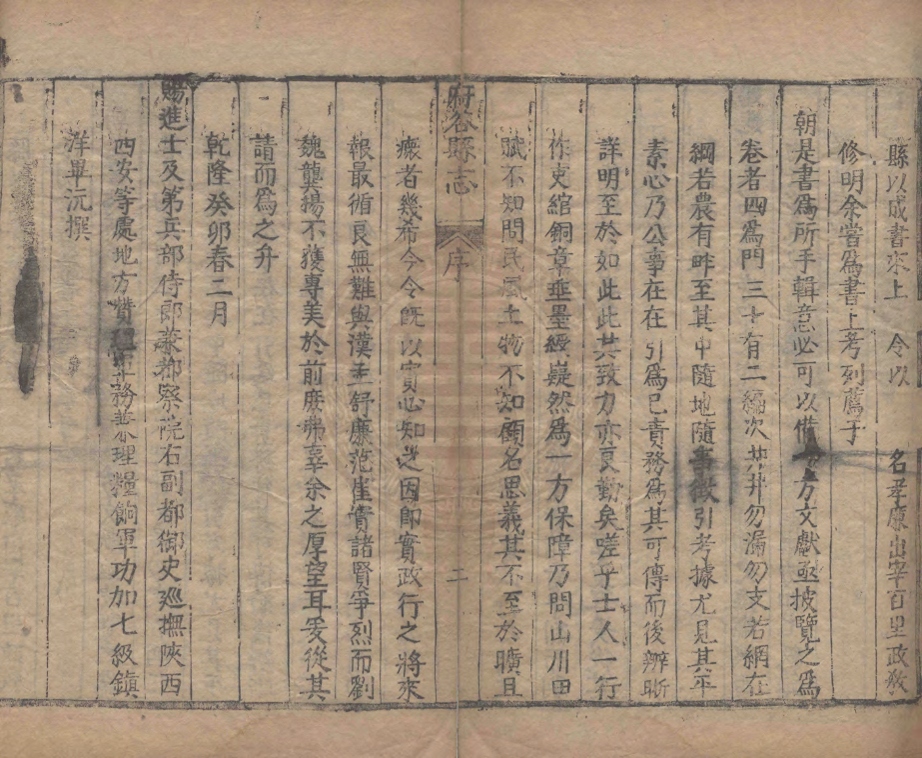 縣以成書來上　令以　名孝廉出宰百里政敎
修明余嘗爲書上考列薦于
朝是書爲所手輯意必可以備一方文獻亟披覽之爲
卷者四爲門三十有二編次共井勿漏勿支若網在
綱若農有畔至其中隨地隨事徵引考據尤見其平
素心乃公事在在引爲已責務爲其可傳而後辨晰
詳明至於如此此其致力亦良勤矣嗟乎士人一行
作吏綰銅章垂墨綬嶷然爲一方保障乃問山川田
賦不知問民風土物不知顧名思義其不至於曠且
府谷縣志　序　二
瘝者幾希今令旣以實心知之因卽實政行之將來
報最循良無難與漢王舒廉范崔寔諸賢爭烈而劉
魏龔揚不獲專美於前庶弗辜余之厚望耳爰從其
請而爲之弁
乾隆癸卯春二月
賜進士及第兵部侍郎兼都察院右副都御史廵撫陜西
西安等處地方贊理軍務兼理糧餉軍功加七級鎮
洋畢沅撰